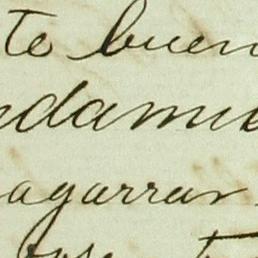 te buen
ndamie
agarrar